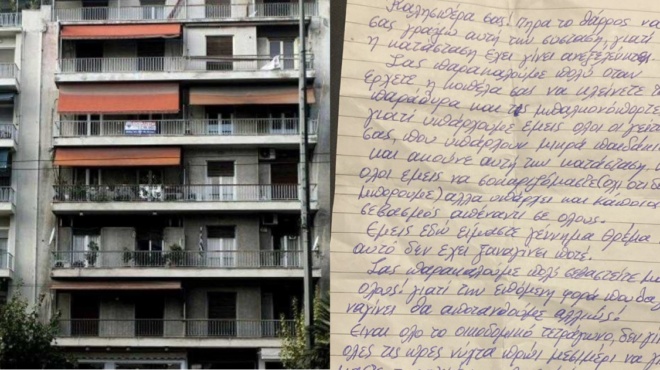 Καλησπέρα σας. Πήρα το θάρρος να
σας γράψω αυτή την σύσταση, γιατί
η κατάσταση έχει γίνει ανεξέλεγκτη.
Σας παρακαλούμε πολύ όταν
έρχετε η κοπέλα σας να κλείνετε τα
παράθυρα και τις μπαλκονόπορτες
γιατί υπάρχουμε εμείς όλοι οι γείτο
σας, που υπάρχουν μικρά παιδάκια
και ακούνε αυτή την κατάσταση.
όλοι εμείς να σοκαριζόμαστε (όχι ότι δεν
μπορούμε) αλλά υπάρχει και κάποιος
σεβασμός απέναντι σε όλους.
Εμείς εδώ είμαστε γέννημα θρέμα
αυτό δεν έχει ξαναγίνει ποτέ.
Σας παρακαλούμε πολύ σεβαστείτε μας
όλους γιατί την επόμενη φορά που θα ξα
ναγίνει θα απαιτηθούμε αλλιώς!
Είναι όλο το οικοδομικό τετράγωνο, δεν γί
όλες τις ώρες νύχτα πρωί μεσημέρι να